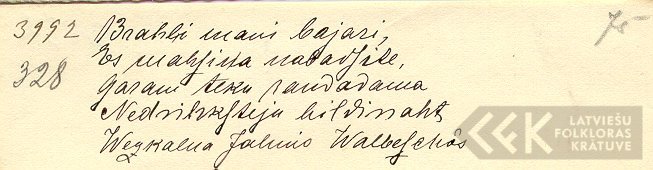 3992 Brahli mani bajari,
Es mahsiņa nabadsite,
328 Garam teku raudadama
Nedrihksteju bildinaht
Wezkalna Jahnis Walbeschôs
75
LATVIEŠU
FOLKLORAS
KRĀTUVE